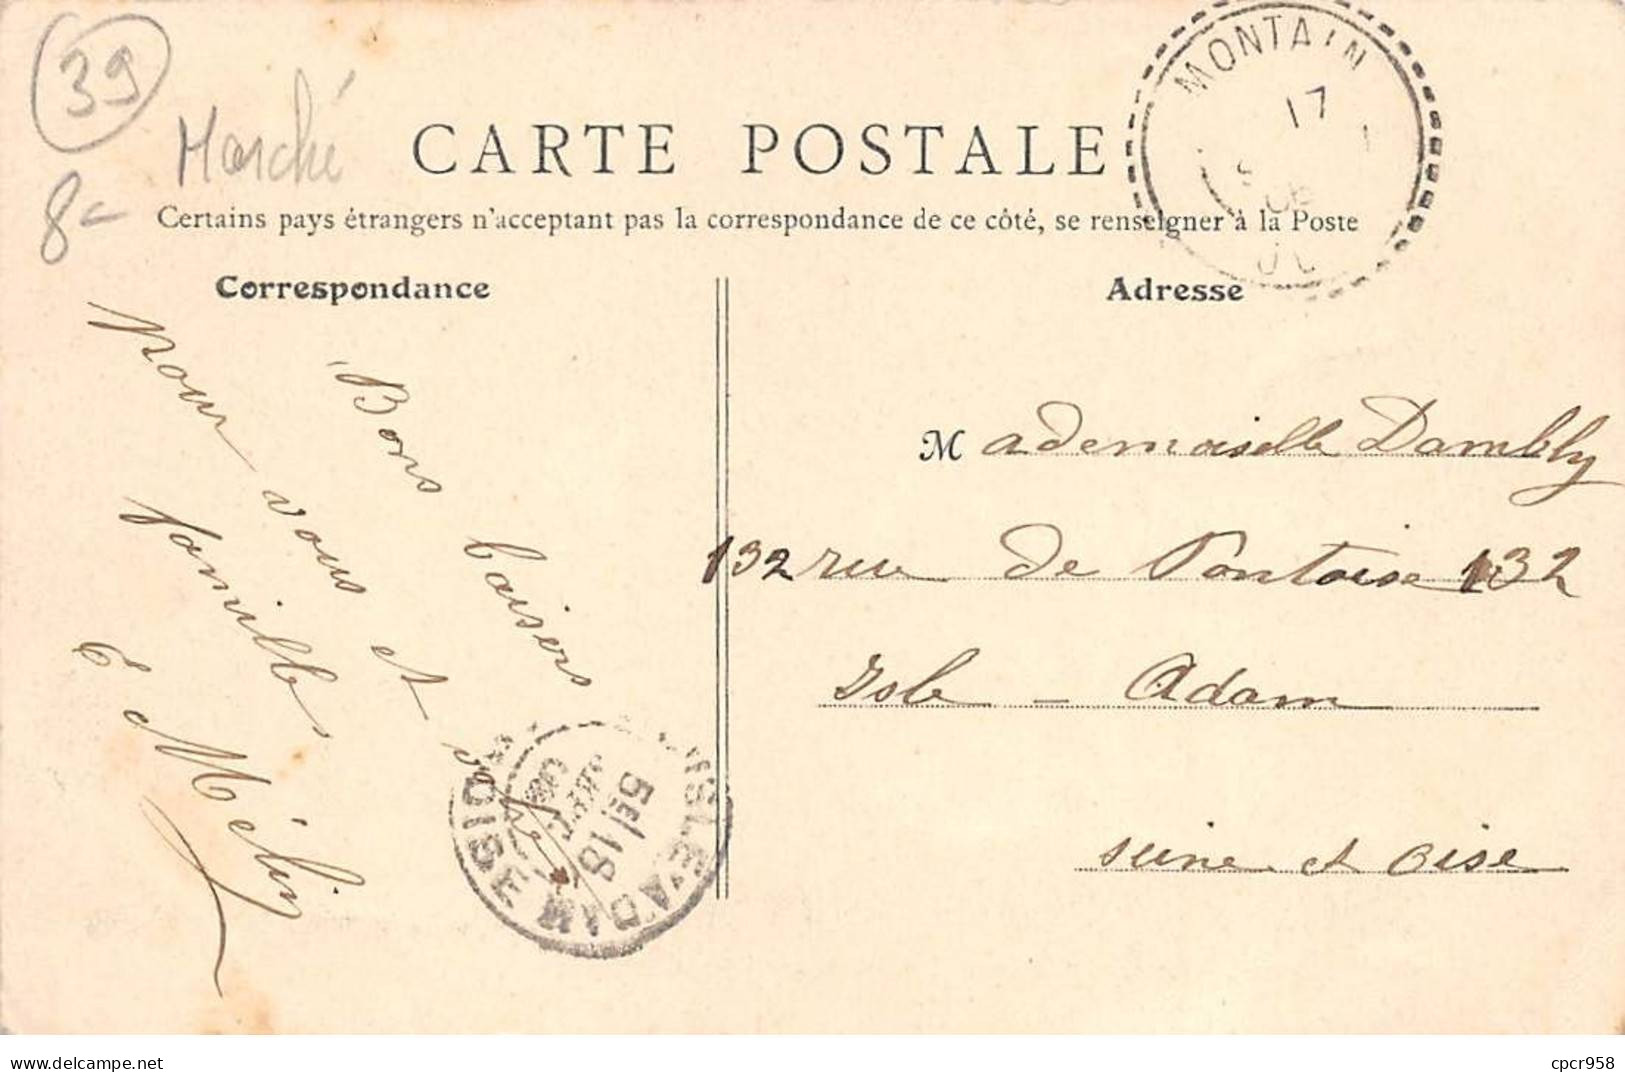 39
Marché
8-
CARTE POSTALE
MONTAIN
17
Certains pays étrangers n'acceptant pas la correspondance de ce côté, se renseigner à la Poste
Correspondance
Bons baisers
pour vous et votre
famille
E Mélin
ISLE-ADAM
5E/18
SEINE-ET-OISE
Adresse
Mademoiselle Dambly
132 rue de Pontoise 132
Isle - Adam
seine et oise
delcampe.net
cpcr958